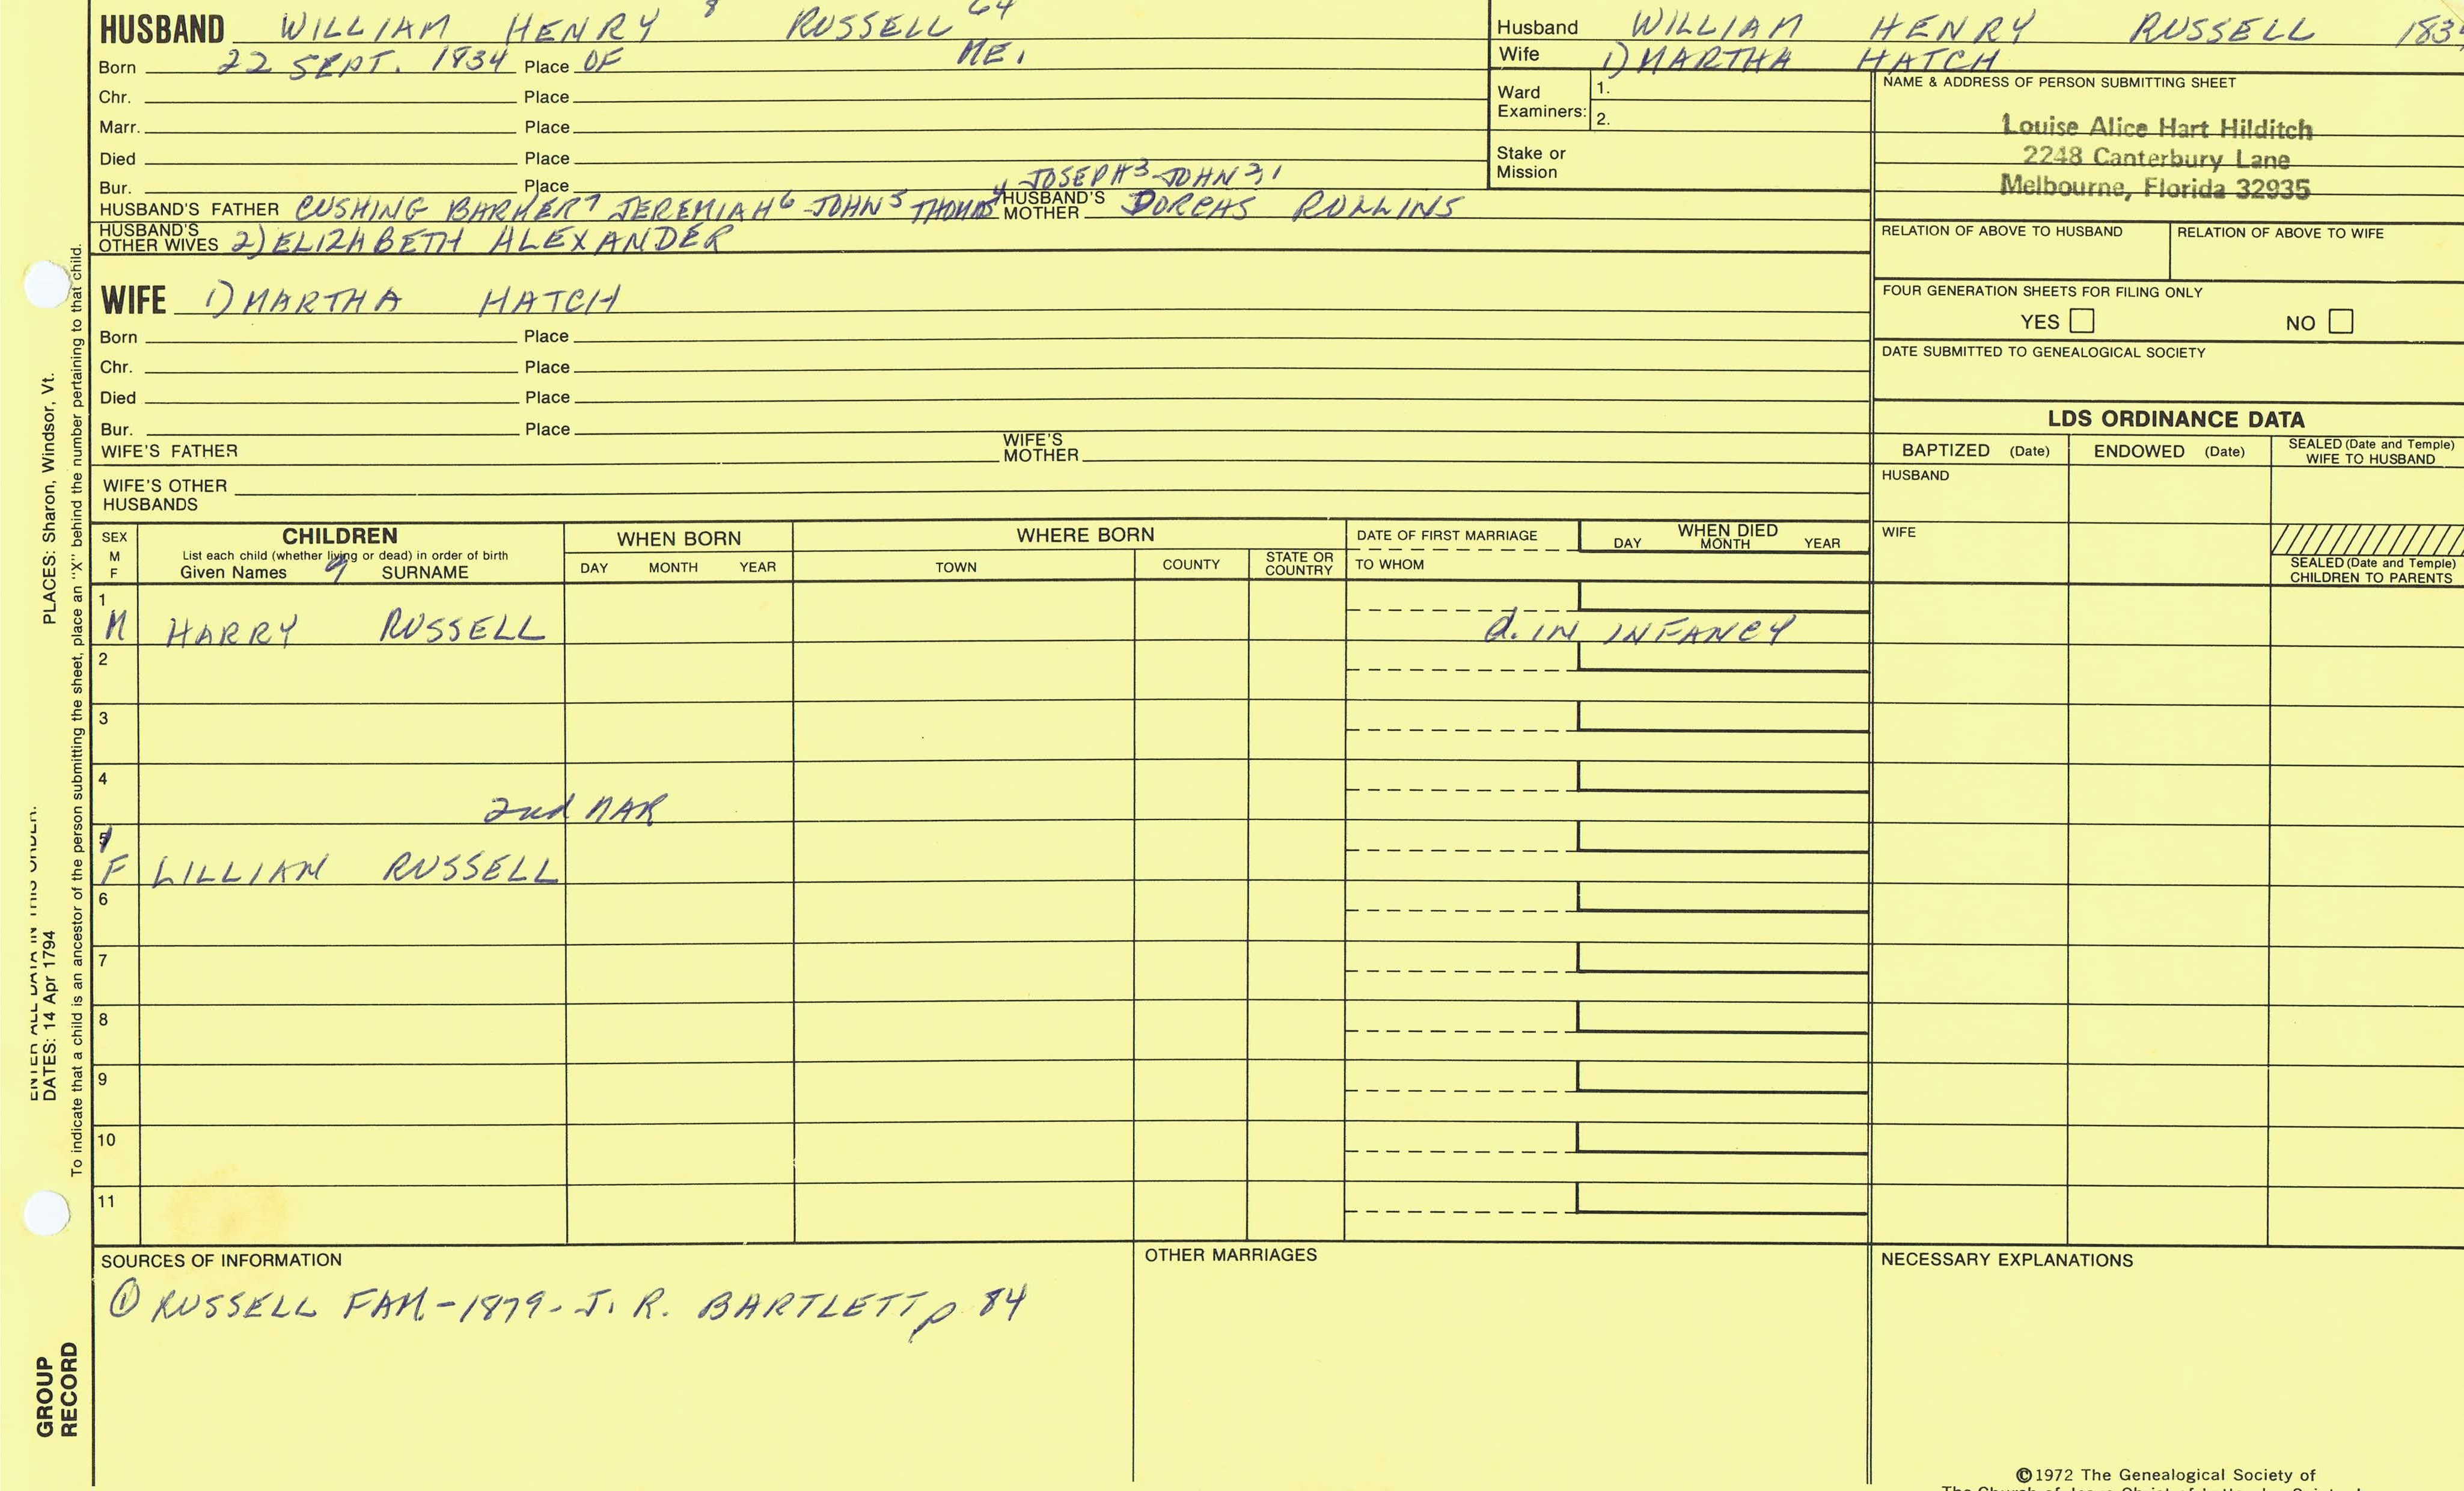 HUSBAND WILLIAM HENRY 8 RUSSELL 64
Born 22 SEPT. 1834 Place OF ME.
Chr. Place
Marr. Place
Died Place
Bur. Place
HUSBAND'S FATHER CUSHING BARKER7 JEREMIAH6 - JOHN5 THOMAS4 JOSEPH3 - JOHN2,1 HUSBAND'S MOTHER DORCAS ROLLINS
HUSBAND'S OTHER WIVES 2) ELIZABETH ALEXANDER
WIFE 1) MARTHA HATCH
Born Place
Chr. Place
Died Place
Bur. Place
WIFE'S FATHER WIFE'S MOTHER
WIFE'S OTHER HUSBANDS
Husband WILLIAM HENRY RUSSELL 1834
Wife 1) MARTHA HATCH
Ward Examiners: 1.
2.
Stake or Mission
NAME & ADDRESS OF PERSON SUBMITTING SHEET
Louise Alice Hart Hilditch
2248 Canterbury Lane
Melbourne, Florida 32935
RELATION OF ABOVE TO HUSBAND RELATION OF ABOVE TO WIFE
FOUR GENERATION SHEETS FOR FILING ONLY
YES NO
DATE SUBMITTED TO GENEALOGICAL SOCIETY
LDS ORDINANCE DATA
BAPTIZED (Date) ENDOWED (Date) SEALED (Date and Temple) WIFE TO HUSBAND
HUSBAND
WIFE
SEALED (Date and Temple) CHILDREN TO PARENTS
SEX M F
CHILDREN
List each child (whether living or dead) in order of birth
Given Names 9 SURNAME
WHEN BORN
DAY MONTH YEAR
WHERE BORN
TOWN COUNTY STATE OR COUNTRY
DATE OF FIRST MARRIAGE
TO WHOM
WHEN DIED
DAY MONTH YEAR
1
M HARRY RUSSELL d. IN INFANCY
2
3
4
2nd MAR
5
F LILLIAN RUSSELL
6
7
8
9
10
11
SOURCES OF INFORMATION
① RUSSELL FAM - 1879 - J. R. BARTLETT p 84
OTHER MARRIAGES
NECESSARY EXPLANATIONS
©1972 The Genealogical Society of
The Church of Jesus Christ of Latter-day Saints
ENTER ALL DATA IN THIS ORDER:
DATES: 14 Apr 1794 PLACES: Sharon, Windsor, Vt.
To indicate that a child is an ancestor of the person submitting the sheet, place an "X" behind the number pertaining to that child.
GROUP
RECORD